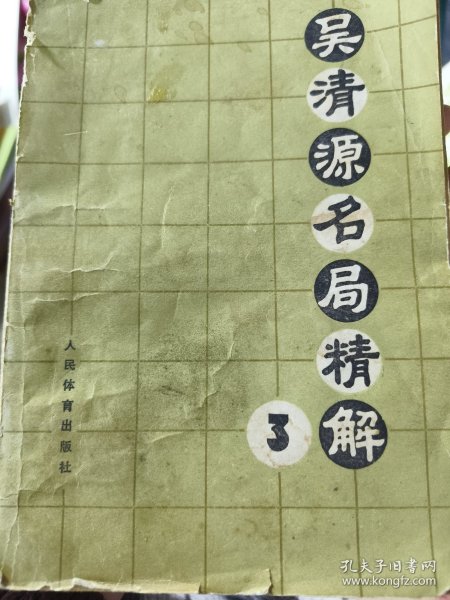 吴清源名局精解
3
人民体育出版社
孔夫子旧书网
www.kongfz.com